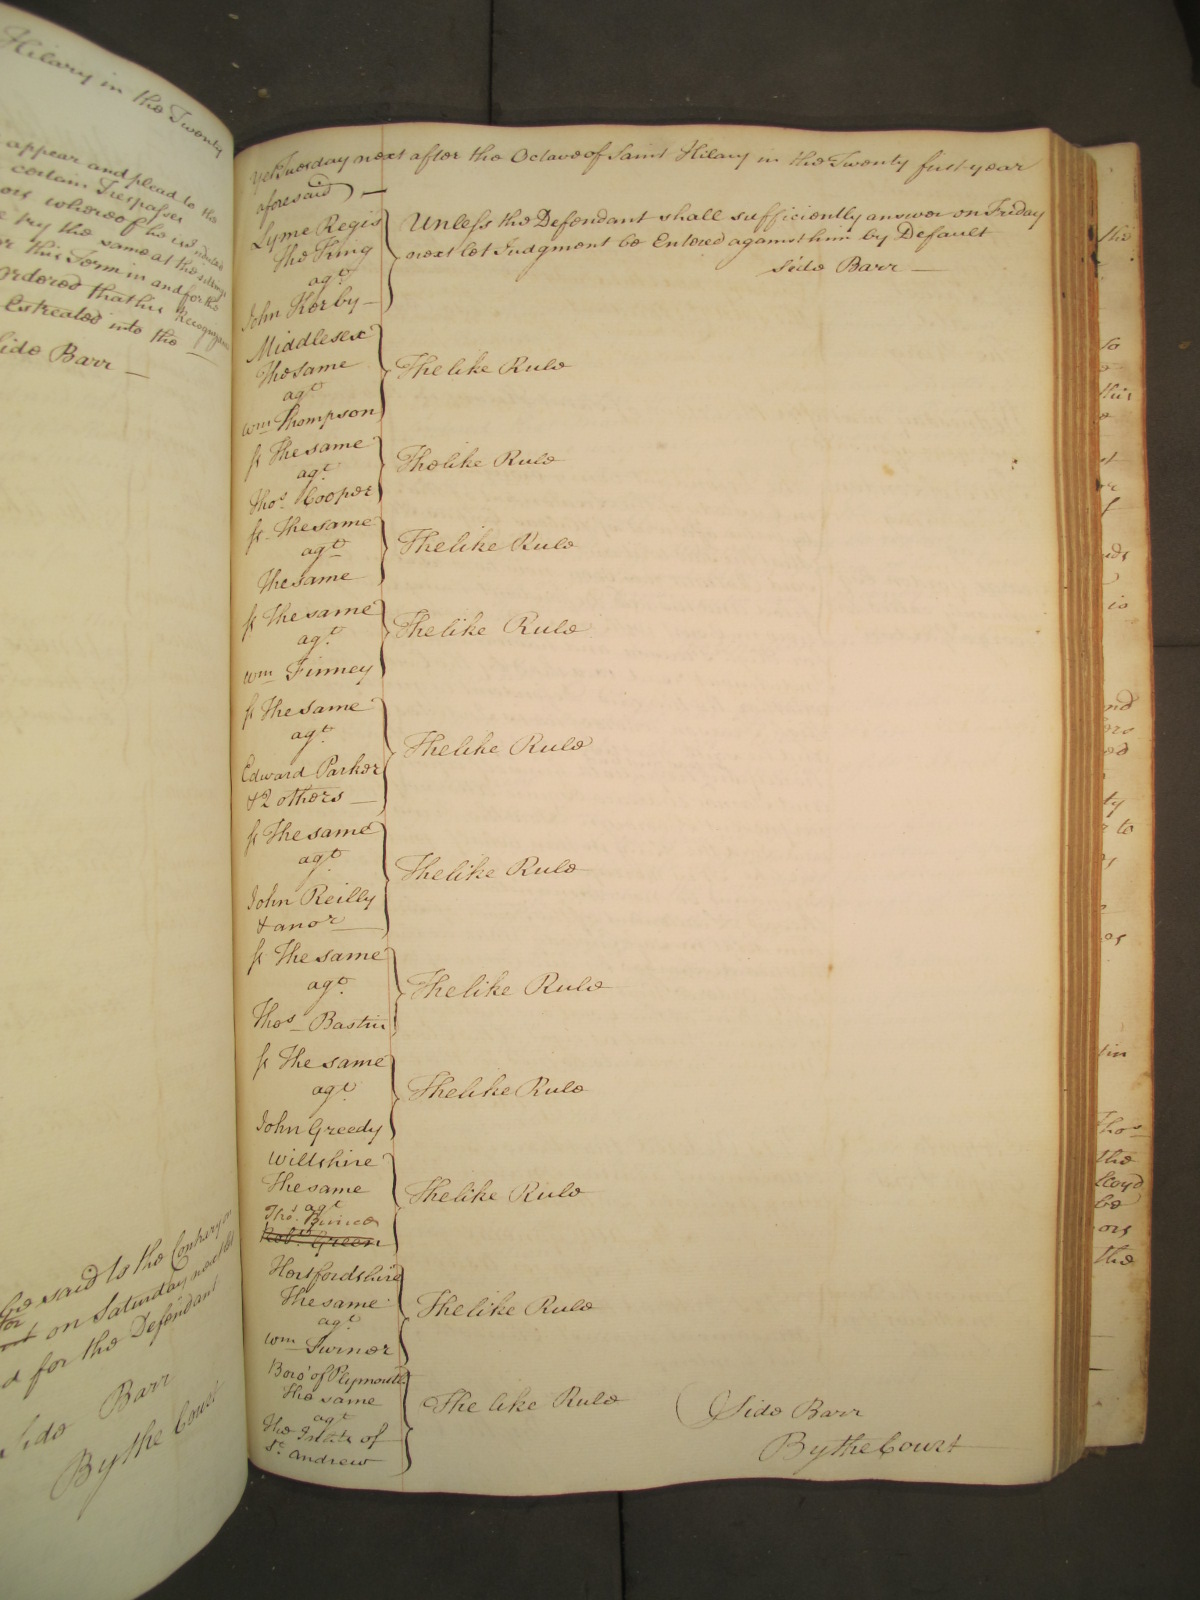 Hilary in the Twenty
appear and plead to the
certain Trespasses
ors whereof he is Indicted
try the same at the sittings
this Term in and for the
ordered that his Recognizance
Estreated into the
Side Barr
said to the Contrary on
on Saturday next
for the Defendant
Side Barr
By the Court
Yet Tuesday next after the Octave of Saint Hilary in the Twenty first year
aforesaid
Lyme Regis
The King
agt
John Kerby
Unless the Defendant shall sufficiently answer on Friday
next let Judgment be Entered against him by Default
Side Barr
Middlesex
The same
agt
Wm Thompson
The like Rule
ss The same
agt
Thos Cooper
The like Rule
ss The same
agt
The same
The like Rule
ss The same
agt
Wm Finney
The like Rule
ss The same
agt
Edward Parker
& 2 others
The like Rule
ss The same
agt
John Reilly
& anor
The like Rule
ss The same
agt
Thos Bastin
The like Rule
ss The same
agt
John Greedy
The like Rule
Wiltshire
The same
agt
Thos
Robt Green
The like Rule
Hertfordshire
The same
agt
Wm Turner
The like Rule
Boro' of Plymouth
The same
agt
The Inhabts of
St Andrew
The like Rule
Side Barr
By the Court